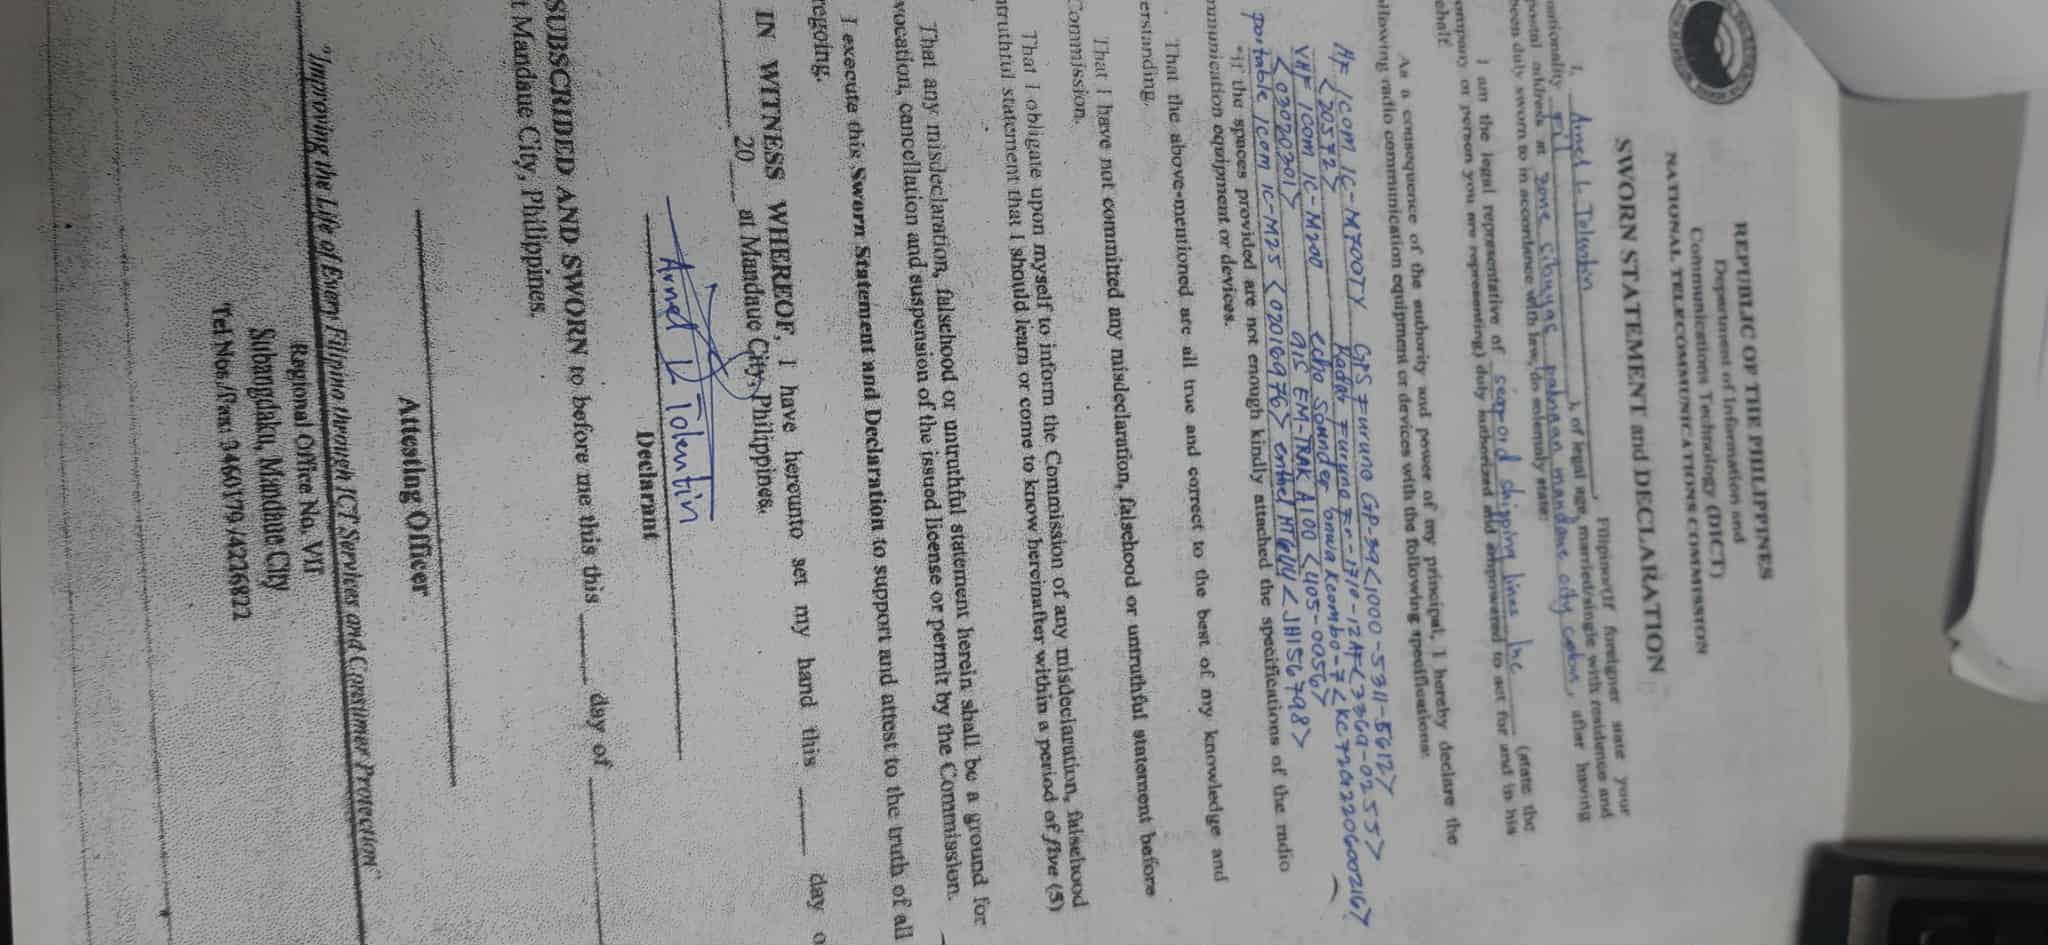 REPUBLIC OF THE PHILIPPINES
Department of Information and
Communications Technology (DICT)
NATIONAL TELECOMMUNICATIONS COMMISSION
SWORN STATEMENT and DECLARATION
I, Arnel L. Tolentin, Filipino(If foreigner state your
nationality Fil), of legal age, married/single with residence and
postal address at zone mandaue city, after having
been duly sworn to in accordance with law, do solemnly state:
I am the legal representative of seaford shipping lines Inc (state the
company or person you are representing) duly authorized and empowered to act for and in his
behalf.
As a consequence of the authority and power of my principal, I hereby declare the
following radio communication equipment or devices with the following specifications:
HF ICOM IC-M700TY GPS Furuno GP-39 <1000-5311-5612>
<20572> Radar Furuno <3369-0255>
VHF ICom IC-M200 echo Sounder
<03020201> AIS EM-TRAK A100 <405-0056>
Portable ICom IC-M25 <02016976> entel <JH156798>
*if the spaces provided are not enough kindly attached the specifications of the radio
communication equipment or devices.
That the above-mentioned are all true and correct to the best of my knowledge and
erstanding.
That I have not committed any misdeclaration, falsehood or untruthful statement before
Commission.
That I obligate upon myself to inform the Commission of any misdeclaration, falsehood
ntruthful statement that I should learn or come to know hereinafter within a period of five (5)
That any misdeclaration, falsehood or untruthful statement herein shall be a ground for
vocation, cancellation and suspension of the issued license or permit by the Commission.
I execute this Sworn Statement and Declaration to support and attest to the truth of all
regoing.
IN WITNESS WHEREOF, I have hereunto set my hand this ____ day o
____ 20___ at Mandaue City, Philippines.
Arnel L Tolentin
Declarant
SUBSCRIBED AND SWORN to before me this this ____ day of ____
t Mandaue City, Philippines.
Attesting Officer
"Improving the Life of Every Filipino through ICT Services and Consumer Protection"
Regional Office No. VII
Subangdaku, Mandaue City
Tel Nos./Fax: 3460179/4226822